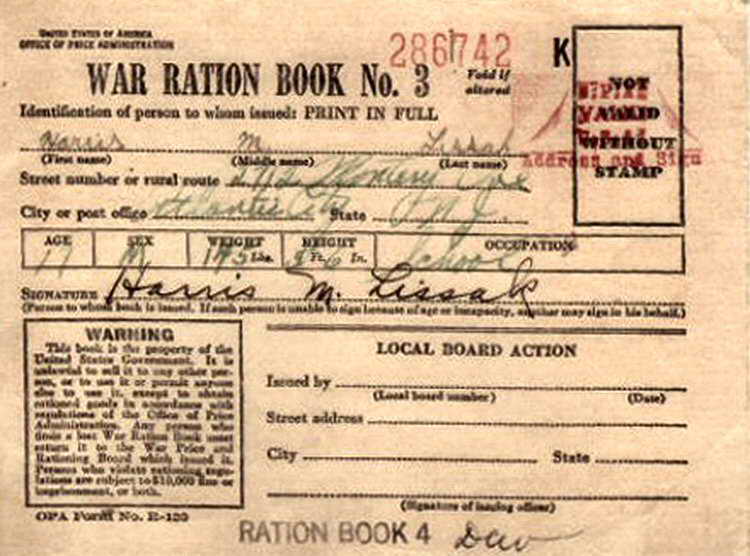 UNITED STATES OF AMERICA
OFFICE OF PRICE ADMINISTRATION
286742 K
WAR RATION BOOK No. 3 Void if altered
Identification of person to whom issued: PRINT IN FULL
NOT VALID WITHOUT STAMP
Address and Sign
Harris M. Lissak
(First name) (Middle name) (Last name)
Street number or rural route Ave
City or post office Atlantic City State N.J.
AGE SEX WEIGHT HEIGHT OCCUPATION
17 M 145 Lbs. 5 Ft. 6 In. School
SIGNATURE Harris M. Lissak
(Person to whom book is issued. If such person is unable to sign because of age or incapacity, another may sign in his behalf.)
WARNING
This book is the property of the
United States Government. It is
unlawful to sell it to any other per-
son, or to use it or permit anyone
else to use it, except to obtain
rationed goods in accordance with
regulations of the Office of Price
Administration. Any person who
finds a lost War Ration Book must
return it to the War Price and
Rationing Board which issued it.
Persons who violate rationing regu-
lations are subject to $10,000 fine or
imprisonment, or both.
OPA Form No. R-130
LOCAL BOARD ACTION
Issued by
(Local board number) (Date)
Street address
City State
(Signature of issuing officer)
RATION BOOK 4